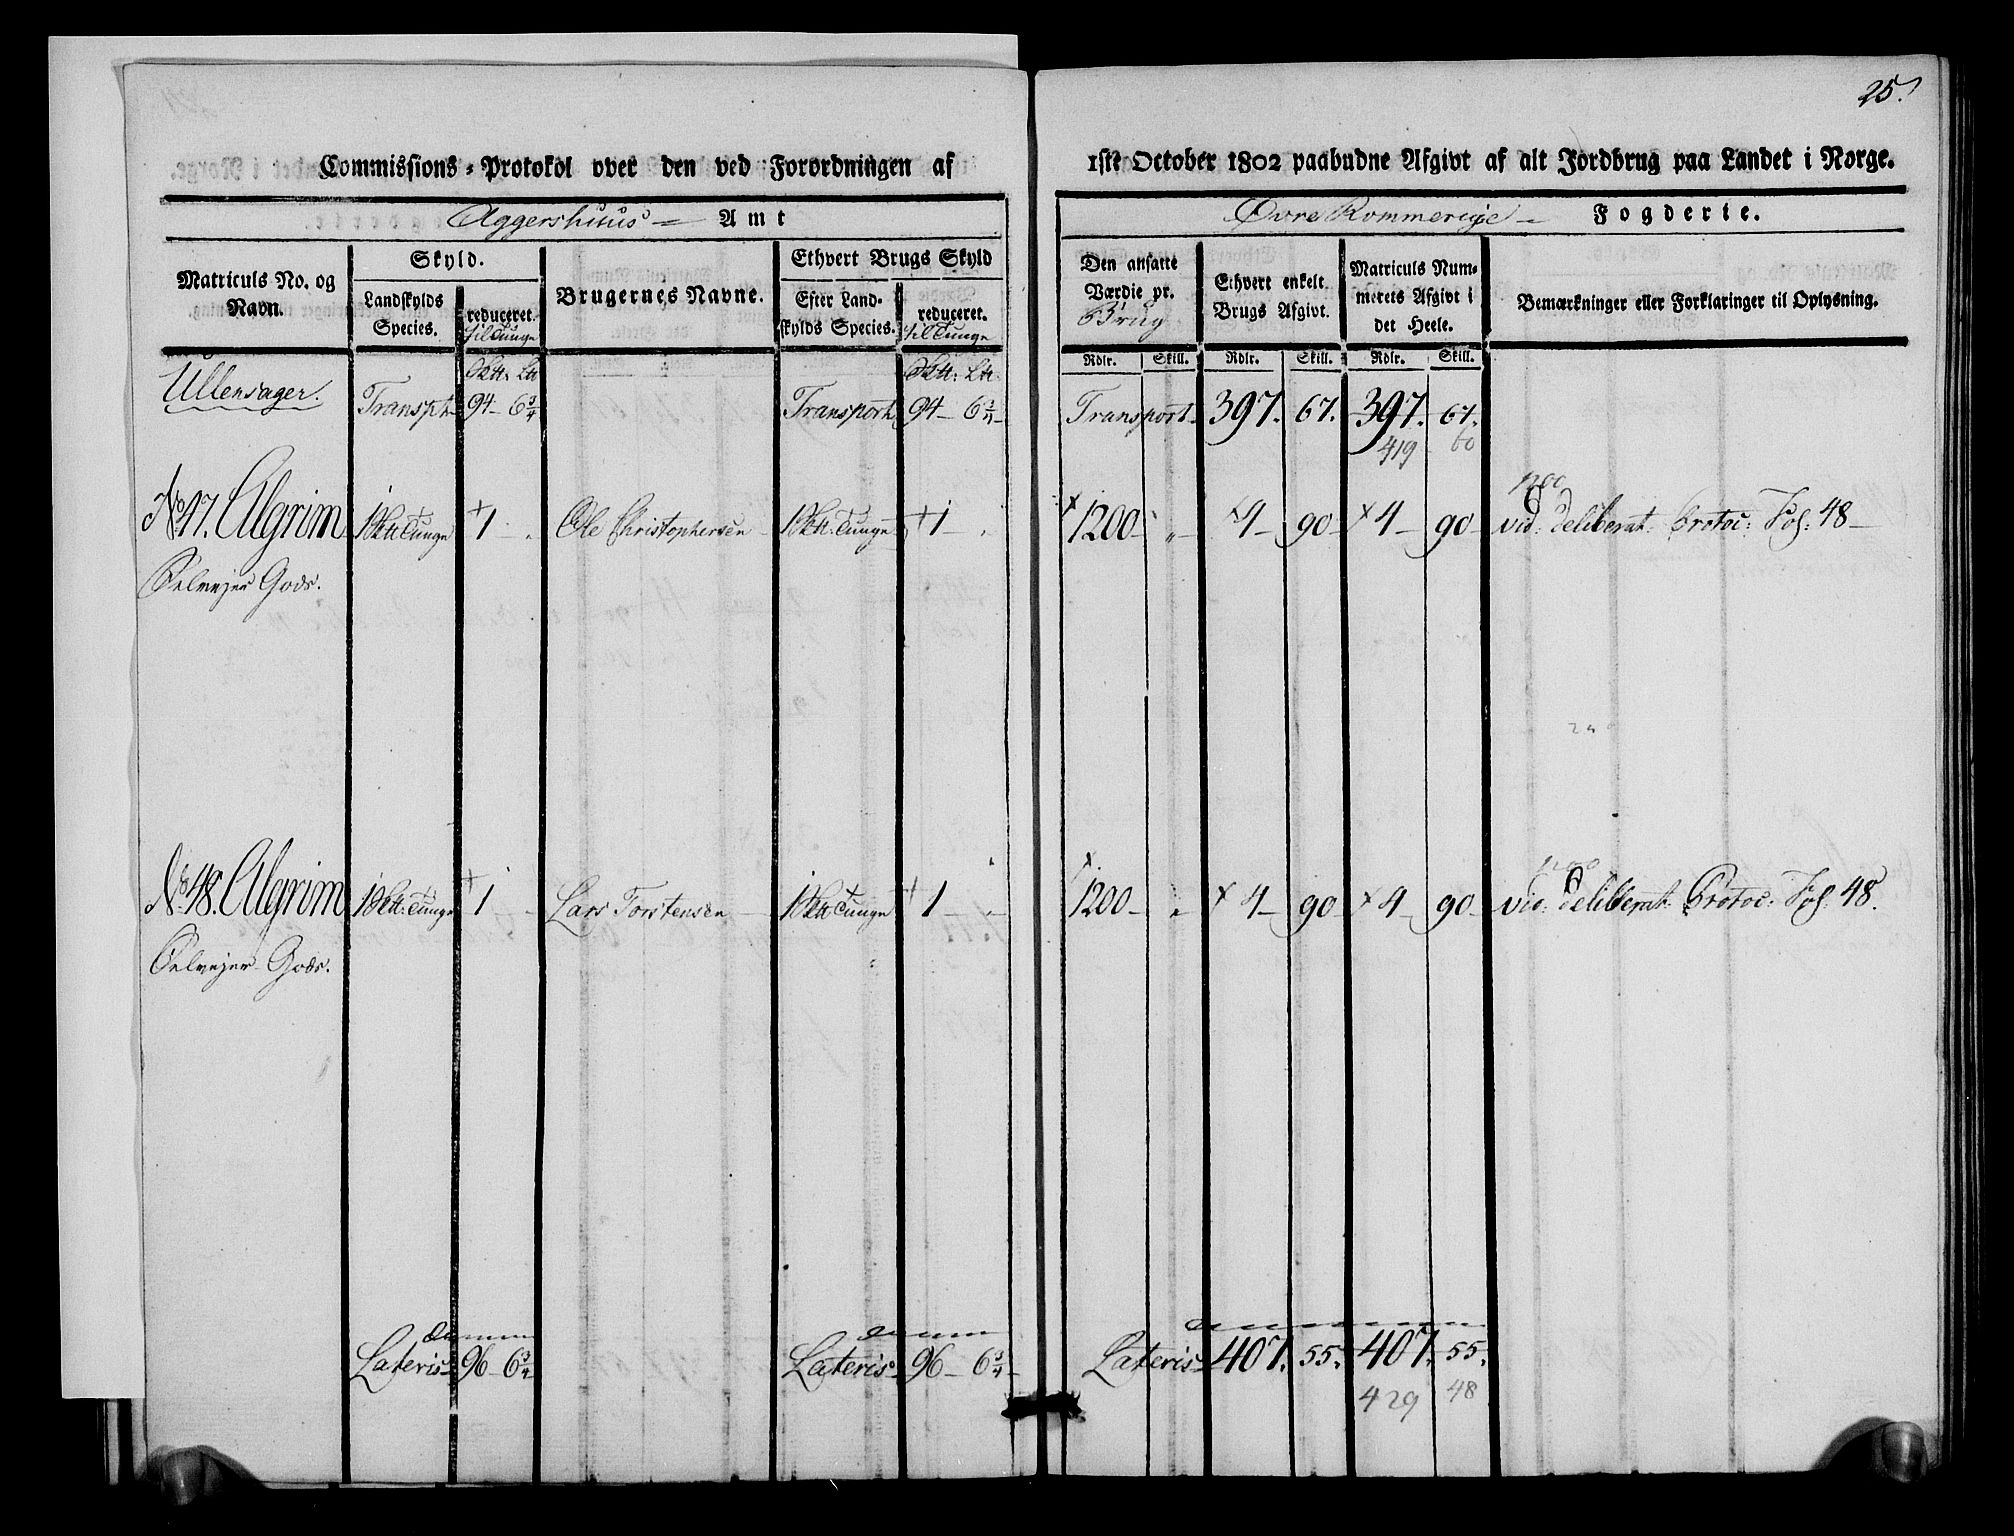 25.
Commissions-Protokol over den ved Forordningen af 1ste October 1802 paabudne Afgivt af alt Jordbrug paa Landet i Norge.
Aggershuus Amt Øvre Rommerige Fogderie.
Matriculs No. og Navn.
Skyld.
Landskylds Species.
reduceret. til Tunge
Brugernes Navne.
Ethvert Brugs Skyld
Efter Landskylds Species.
reduceret. til Tunge
Den ansatte Værdie pr. Brug
Ethvert enkelt Brugs Afgivt.
Matriculs Nummerets Afgivt i det Heele.
Bemærkninger eller Forklaringer til Oplysning.
Rdlr. Skill. Rdlr. Skill. Rdlr. Skill.
Ullensager. Transpt 94 6 3/4 Transport 94 6 3/4 Transport 397. 67. 397. 67.
419 60
1200
No 47. Algrim 1 Tunge 1 Ole Christophersen 1 Tunge 1 1200 4 90 4 90 vid: deliberat: Protoc: Fol: 48
Selvejer Gods.
1200
No 48. Algrim 1 Tunge 1 Lars Torstensen 1 Tunge 1 1200 4 90 4 90 vid: deliberat: Protoc: Fol: 48.
Selvejer Gods.
Lateris 96 6 3/4 Lateris 96 6 3/4 Lateris 407. 55. 407. 55.
429 48